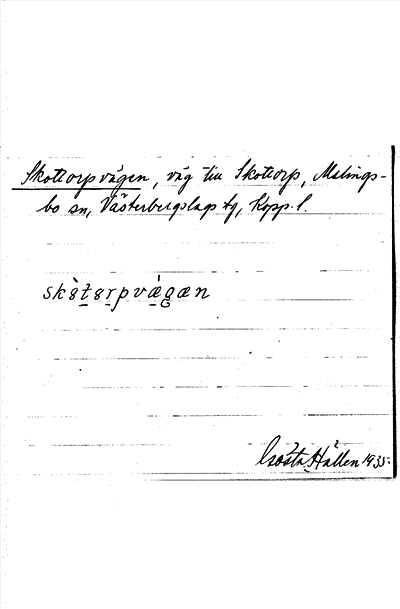 Skottorpvägen, väg till Skottorp, Malings-
bo sn, Västerbergslags tg, Kopp. l.
sk8̀t8rpvǽgæn
Gösta Hállen 1935.